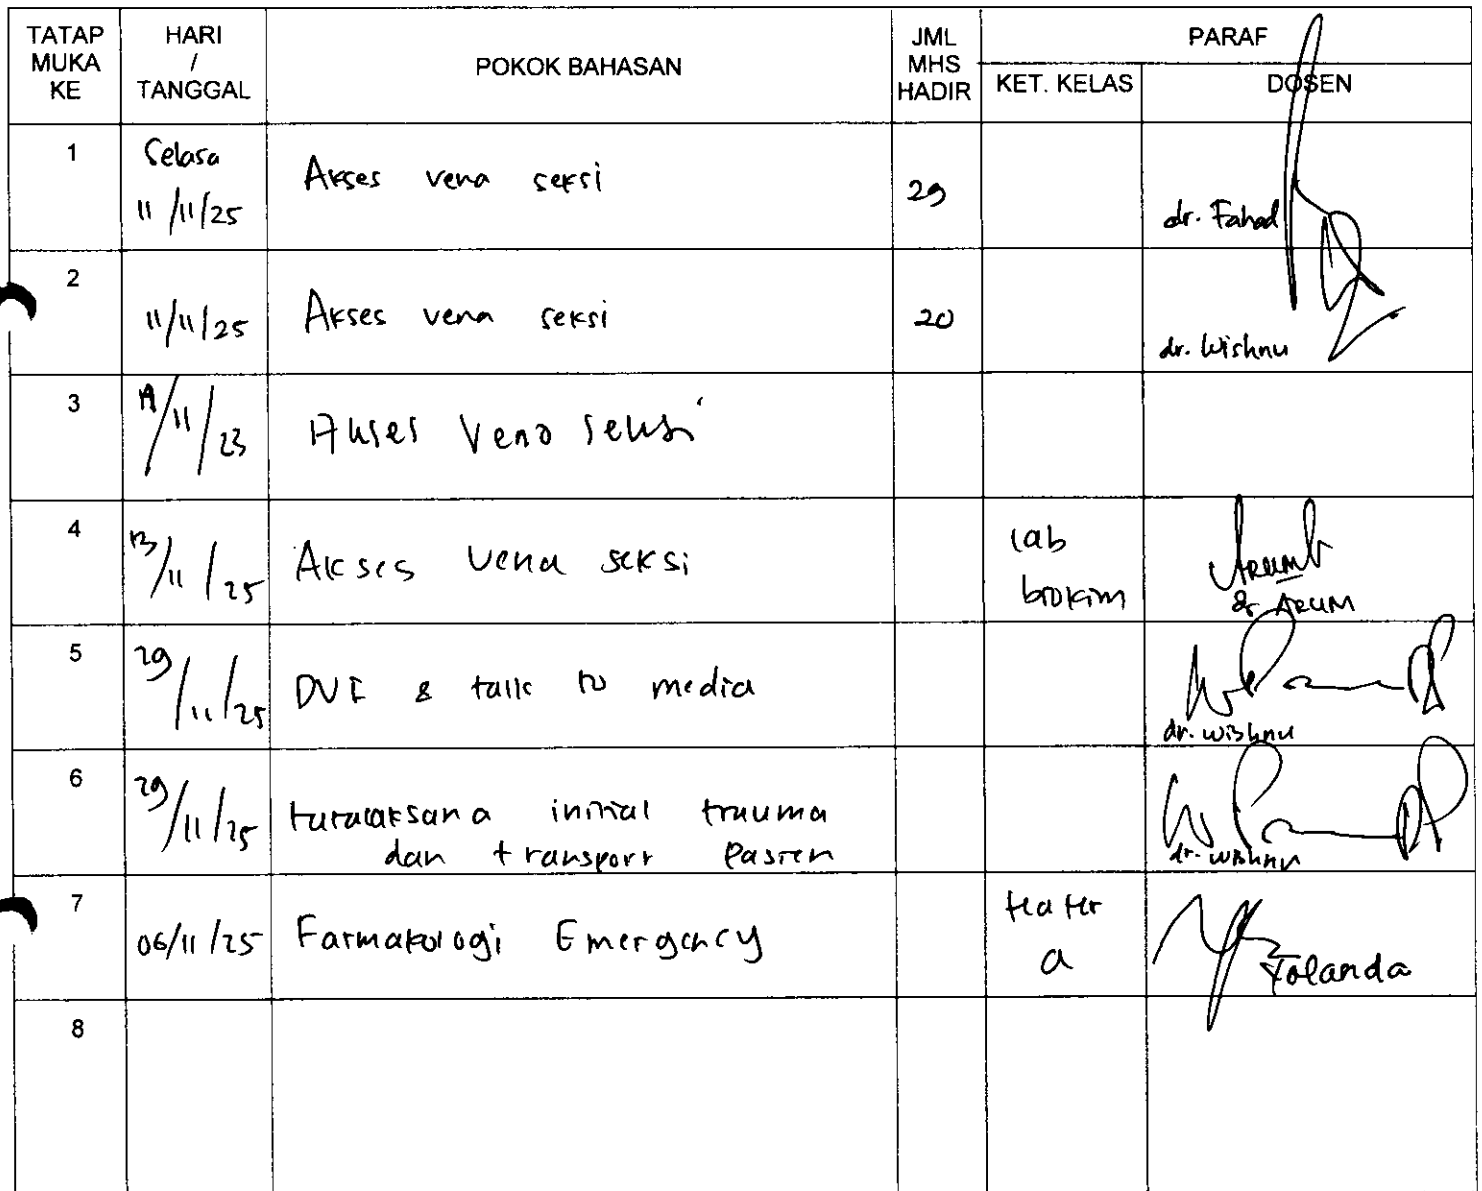 TATAP MUKA KE
HARI / TANGGAL
POKOK BAHASAN
JML MHS HADIR
PARAF
KET. KELAS
DOSEN
1
Selasa
11/11/25
Akses vena seksi
29
dr. Fahad
2
11/11/25
Akses vena seksi
20
dr. Wishnu
3
/11/23
Akses Vena seksi
4
13/11/25
Akses vena seksi
lab
biokim
Arum
dr ARUM
5
29/11/25
DVI & talk to media
dr. wishnu
6
29/11/25
tatalaksana initial trauma
dan transport pasien
dr. wishnu
7
06/11/25
Farmakologi Emergency
teater
a
Yolanda
8